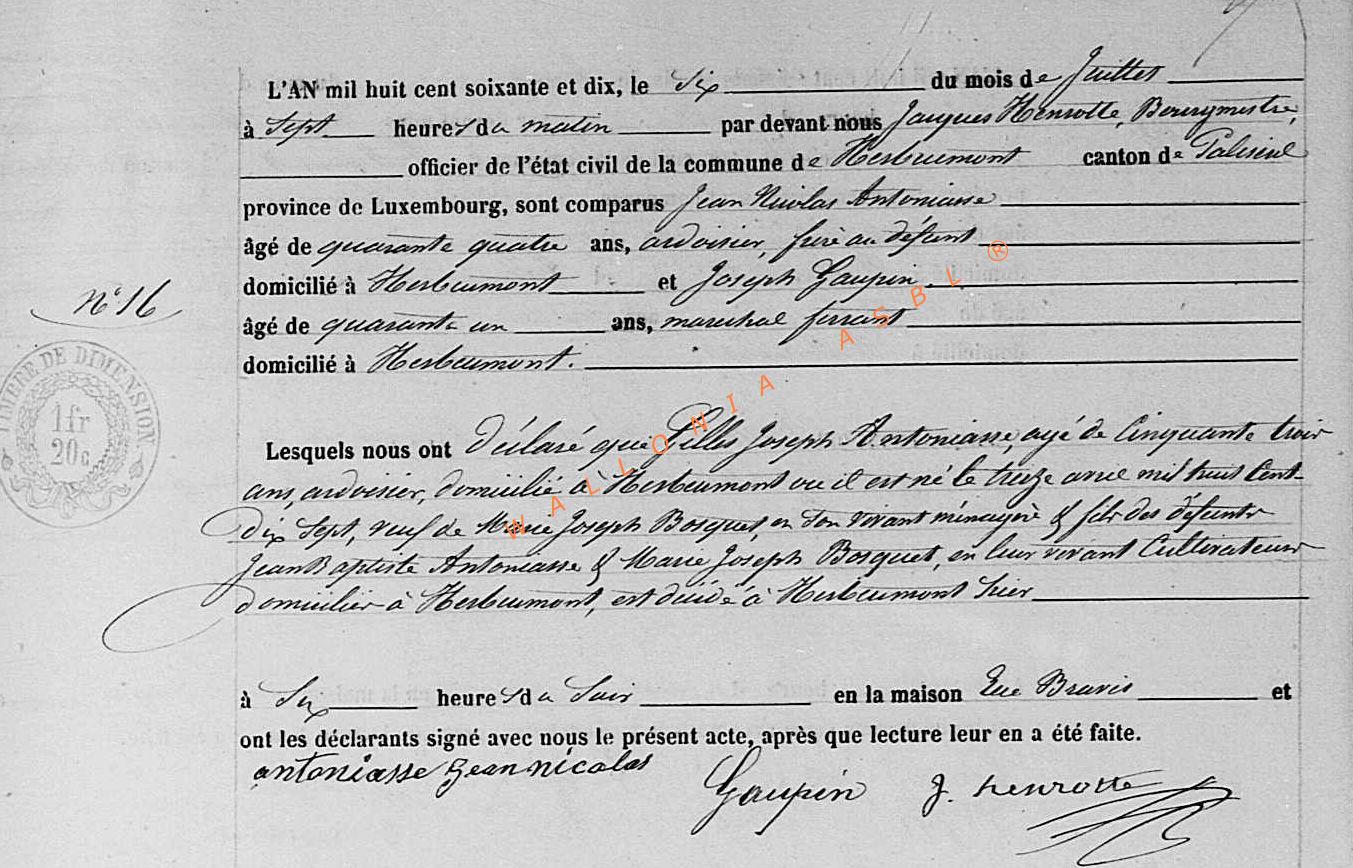 L'AN mil huit cent soixante et dix, le Six du mois de Juillet
à Sept heures du matin par devant nous Jacques Henrotte, Bourgmestre,
officier de l'état civil de la commune de Herbeumont canton de Paliseul
province de Luxembourg, sont comparus Jean Nicolas Antoniasse
âgé de quarante quatre ans, ardoisier, frère au défunt
domicilié à Herbeumont et Joseph Gaupin
N° 16
âgé de quarante un ans, marechal ferrant
domicilié à Herbeumont.
TIMBRE DE DIMENSION
1 fr
20 c
Lesquels nous ont déclaré que Gilles Joseph Antoniasse, agé de cinquante trois
ans, ardoisier, domicilié à Herbeumont ou il est né le treize avril mil huit cent
dix sept, veuf de Marie Joseph Bosquet, en son vivant ménagère & fils des défunts
Jean Baptiste Antoniasse & Marie Joseph Bosquet, en leur vivant cultivateurs
domiciliés à Herbeumont, est décédé à Herbeumont hier
à Six heures du Soir en la maison Rue Bravis et
ont les déclarants signé avec nous le présent acte, après que lecture leur en a été faite.
antoniasse Jean nicolas
Gaupin J. henrotte
WALLONIA ASBL ®